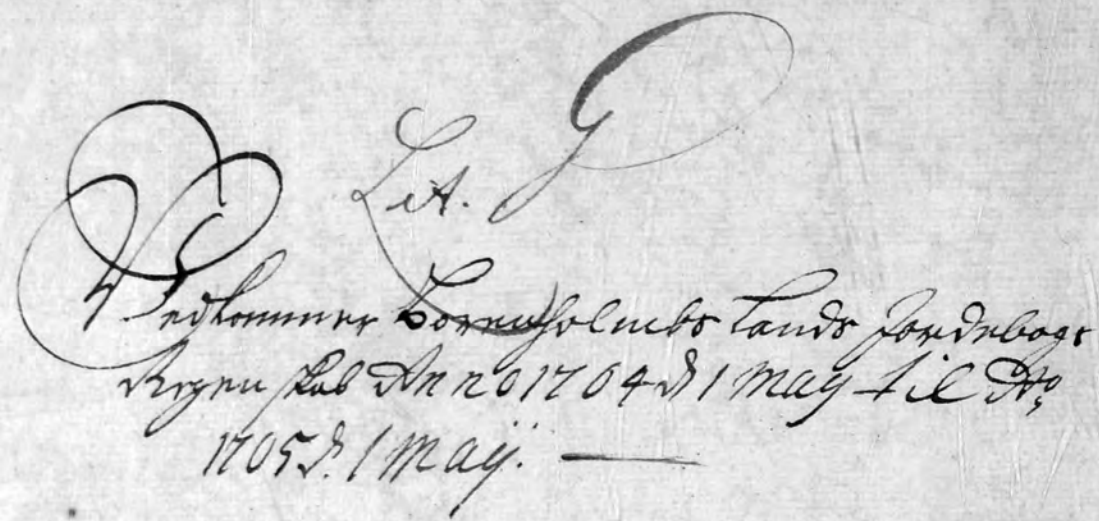 Lit. G
Vedkommer Borringholmbs Lands Jordebogs
Regenskab Anno 1704 d 1 Maij til Ao
1705 d. 1 Maij.